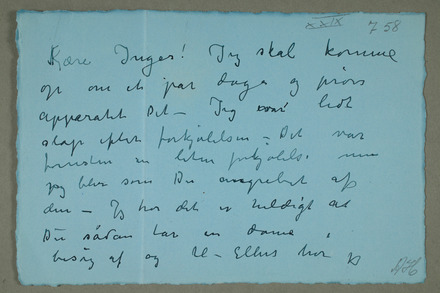 XXIX 758
Kære Inger! Jeg skal komme
op om et par dage og prøve
apparatet Det – Jeg var lidt
slap efter forkjølelsen – Det var
en liten forkjølelse men
jeg blev som Du angrebet af
den – Jeg tror det er uheldigt at
Du sådan har en dame i
besøg af og til – Ellers tror jeg